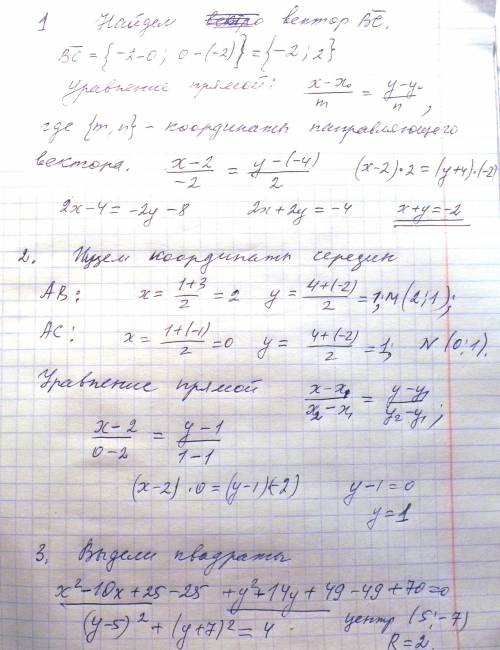 1 Найдем вектор B̅C̅.
B̅C̅ = {-2-0; 0-(-2)} = {-2; 2}
Уравнение прямой: (x-x₀)/m = (y-y₀)/n,
где {m, n} - координаты направляющего
вектора. (x-2)/(-2) = (y-(-4))/2 (x-2)·2 = (y+4)·(-2)
2x-4 = -2y-8 2x+2y = -4 x+y = -2
2. Ищем координаты середин
AB: x = (1+3)/2 = 2 y = (4+(-2))/2 = 1; M(2; 1);
AC: x = (1+(-1))/2 = 0 y = (4+(-2))/2 = 1; N(0; 1).
Уравнение прямой (x-x₁)/(x₂-x₁) = (y-y₁)/(y₂-y₁);
(x-2)/(0-2) = (y-1)/(1-1)
(x-2)·0 = (y-1)(-2) y-1 = 0
y = 1
3. Выдели квадраты
x²-10x+25-25 +y²+14y+49-49+70=0
(y-5)² + (y+7)² = 4 центр (5; -7)
R=2.